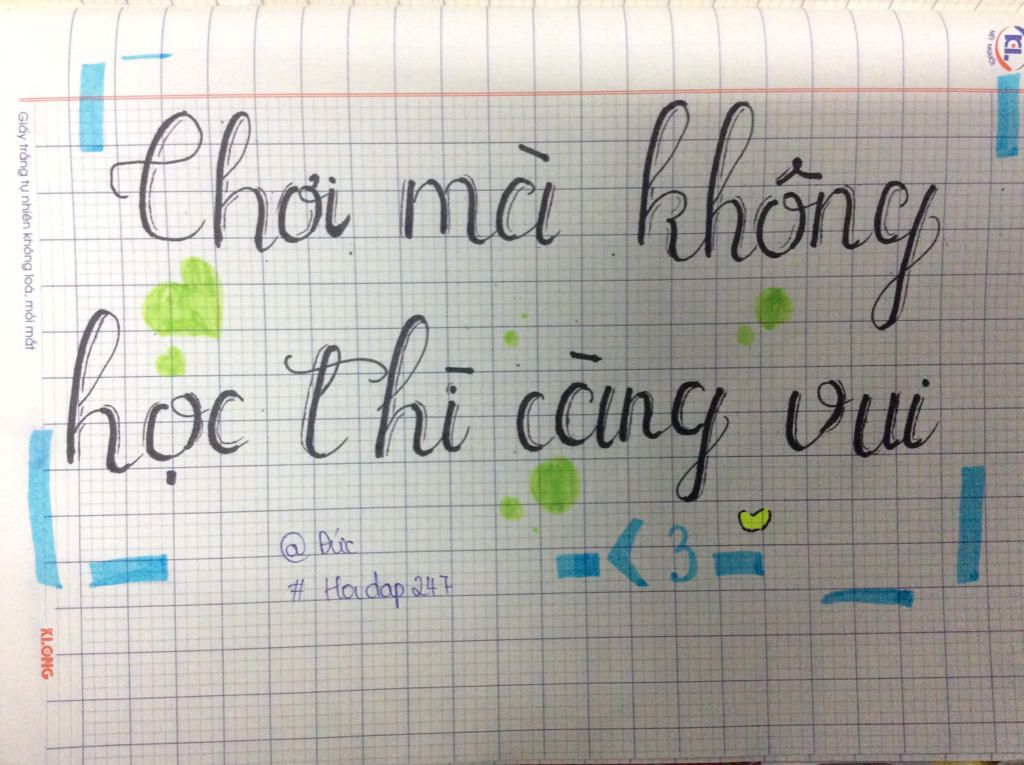 Chơi mà không
học thì càng vui
@ Đức
# Hoidap247
< 3
Giấy trắng tự nhiên không loá, mỏi mắt
KLONG
KL
MỸ NGƯỜI